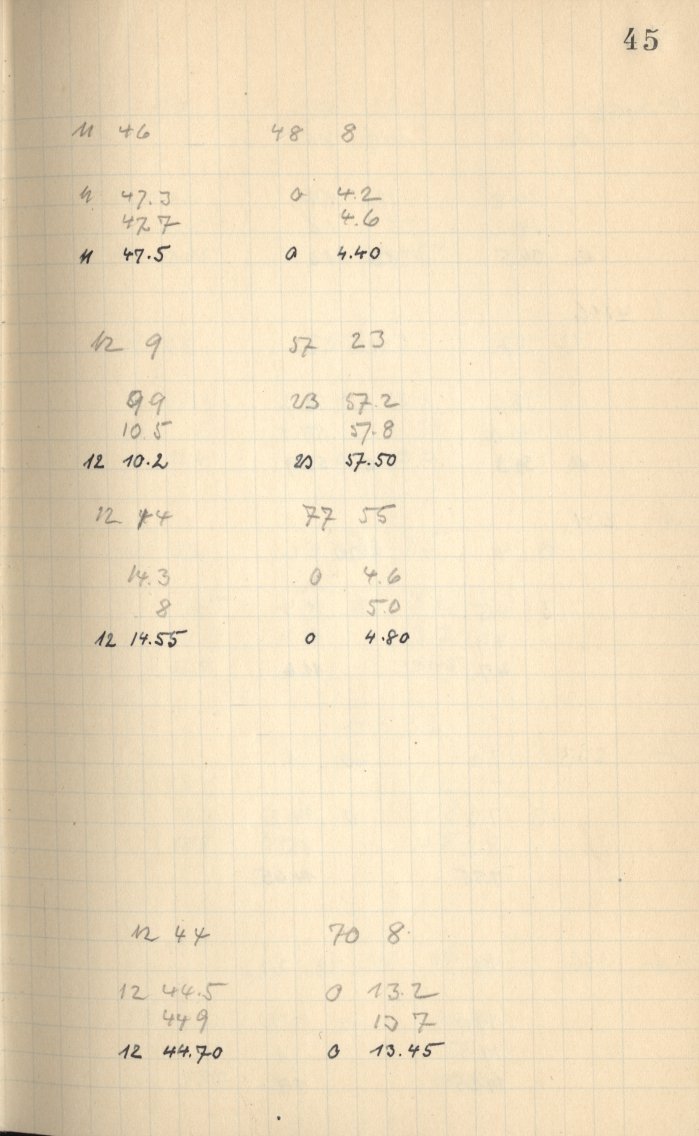 45
11 46 48 8
11 47.3 0 4.2
47.7 4.6
11 47.5 0 4.40
12 9 57 23
9.9 23 57.2
10.5 57.8
12 10.2 23 57.50
12 14 77 55
14.3 0 4.6
8 5.0
12 14.55 0 4.80
12 44 70 8
12 44.5 0 13.2
44 9 13 7
12 44.70 0 13.45